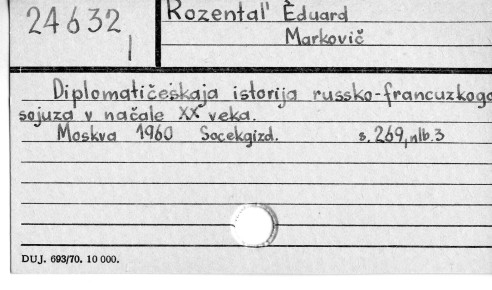 24632
1
Rozental' Ėduard
Markovič
Diplomatičeškaja istorija russko-francuzkogo
sojuza v načale XX veka.
Moskva 1960 Socekgizd. s. 269, nlb. 3
DUJ. 693/70. 10 000.